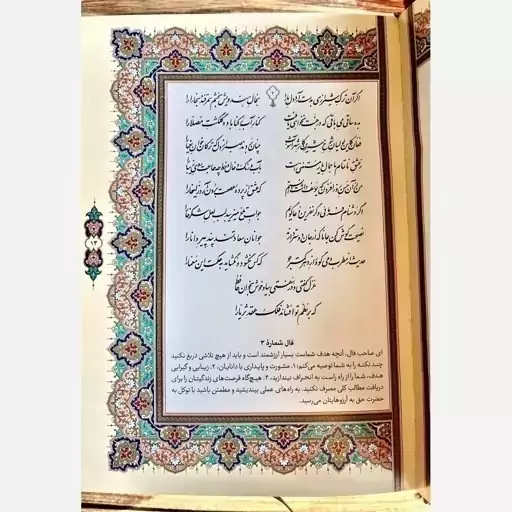 ۳
اگر آن ترک شیرازی به دست آرد دل ما را
به خال هندویش بخشم سمرقند و بخارا را
بده ساقی می باقی که در جنت نخواهی یافت
کنار آب رکناباد و گلگشت مصلا را
فغان کاین لولیان شوخ شیرین‌کار شهرآشوب
چنان بردند صبر از دل که ترکان خوان یغما را
ز عشق ناتمام ما جمال یار مستغنی است
به آب و رنگ و خال و خط چه حاجت روی زیبا را
من از آن حسن روزافزون که یوسف داشت دانستم
که عشق از پرده عصمت برون آرد زلیخا را
اگر دشنام فرمایی و گر نفرین دعا گویم
جواب تلخ می‌زیبد لب لعل شکرخا را
نصیحت گوش کن جانا که از جان دوست‌تر دارند
جوانان سعادتمند پند پیر دانا را
حدیث از مطرب و می گو و راز دهر کمتر جو
که کس نگشود و نگشاید به حکمت این معما را
غزل گفتی و در سفتی بیا و خوش بخوان حافظ
که بر نظم تو افشاند فلک عقد ثریا را
فال شمارهٔ ۳
ای صاحب فال، آنچه هدف شماست بسیار ارزشمند است و باید از هیچ تلاشی دریغ نکنید
چند نکته را به شما توصیه می‌کنم: ۱. مشورت و پایداری با دانایان، ۲. زیبایی و گیرایی
هدف، شما را از راه راست به انحراف نیندازد، ۳. هیچ‌گاه فرصت‌های زندگیتان را برای
دریافت مطالب کلی مصرف نکنید. به راه‌های عملی بیندیشید و مطمئن باشید با توکل به
حضرت حق به آرزوهایتان می‌رسید.
۱۳